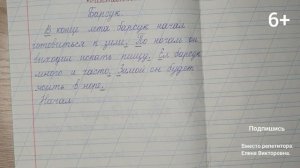 Барсук.
В конце лета барсук начал
готовиться к зиме. По ночам он
выходил искать пищу. Ел барсук
много и часто. Зимой он будет
жить в норе.
Начал
6+
Подпишись
Вместо репетитора.
Елена Викторовна.